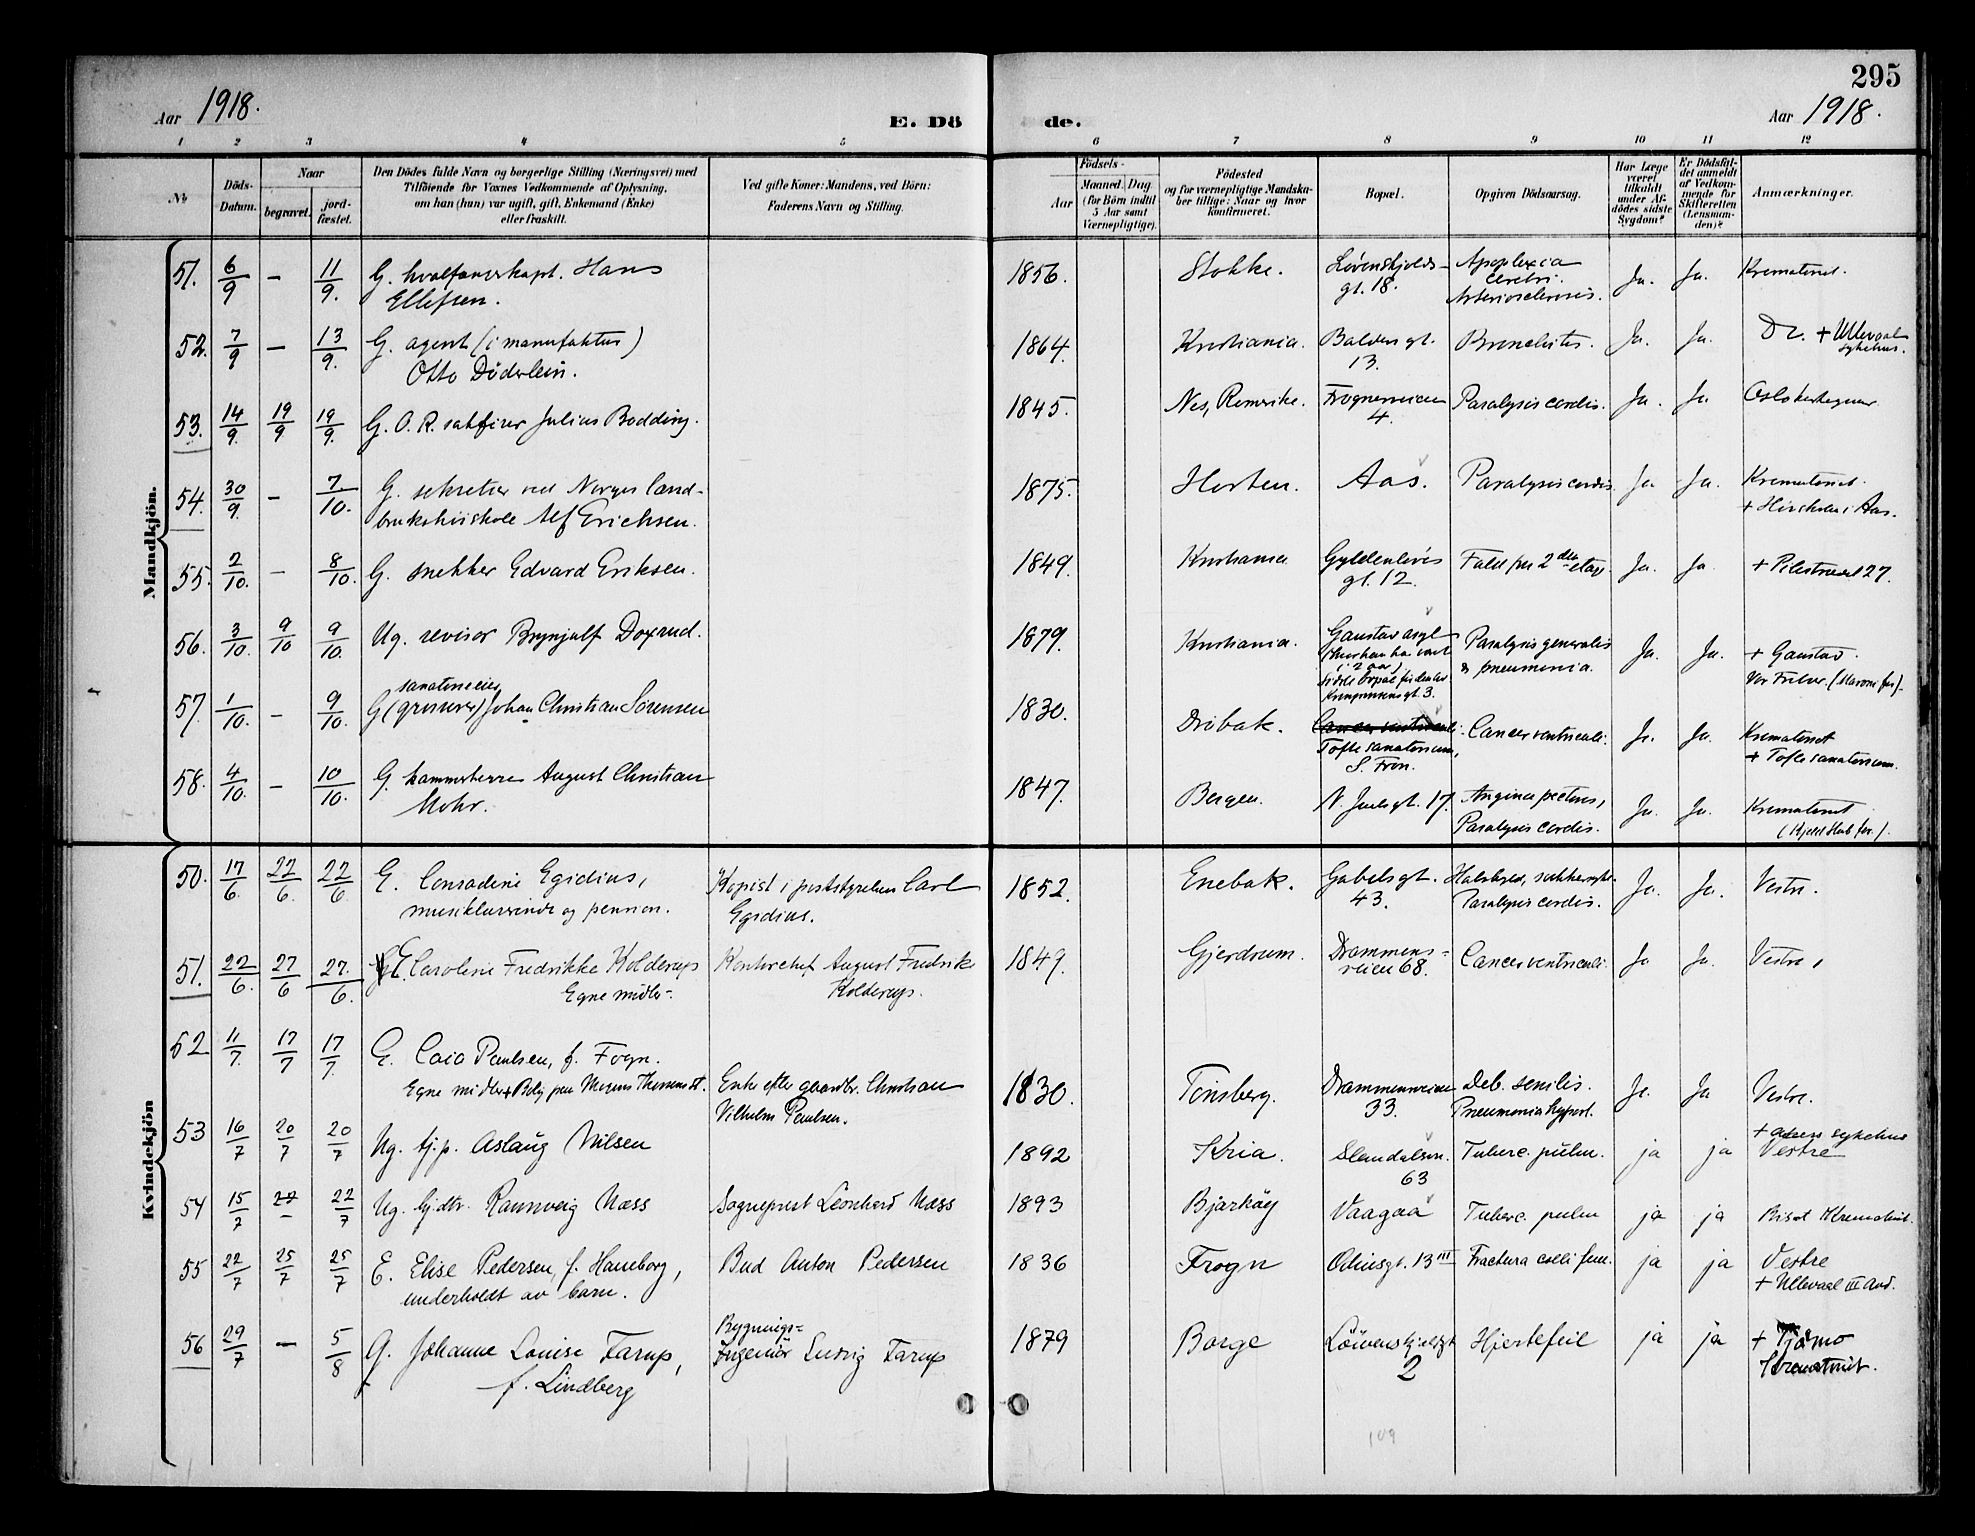 295
Aar 1918.
E. Dö
de.
Aar 1918.
1 2 3 4 5 6 7 8 9 10 11 12
No
Döds-
Datum.
Naar
begravet.
jord-
fæstet.
Den Dödes fulde Navn og borgerlige Stilling (Næringsvei) med
Tilföiende for Voxnes Vedkommende af Oplysning,
om han (hun) var ugift, gift, Enkemand (Enke)
eller fraskilt.
Ved gifte Koner: Mandens, ved Börn:
Faderens Navn og Stilling.
Födsels-
Aar
Maaned. Dag
(for Börn indtil
5 Aar samt
Værnepligtige).
Födested
og for værnepligtige Mandska-
ber tillige: Naar og hvor
konfirmeret.
Bopæl.
Opgiven Dödsaarsag.
Har Læge
været
tilkaldt
under Af-
dödes sidste
Sygdom?
Er Dödsfal-
det anmeldt
af Vedkom-
mende for
Skifteretten
(Lensman-
den)?
Anmærkninger.
Mandkjön.
51. 6/9 – 11/9. G. hvalfangerkapt. Hans
Ellefsen.
1856. Stokke. Løvenskjolds-
gt. 18. Apoplexia
cerebri.
Arteriosclerosis. Ja. Ja. Krematoriet.
52. 7/9 – 13/9. G. agent (i manufaktur)
Otto Döderlein.
1864. Kristiania. Baldersgt.
13. Bronchitis. Ja. Ja. + Ullevaal
sykehus.
53. 14/9. 19/9 19/9. G. O. R. sakfører Julius Bodding.
1845. Nes, Romerike. Frognerveien
4. Paralysis cordis. Ja. Ja Oslo
54. 30/9. – 7./10. G. sekretær ved Norges land-
brukshøiskole Alf Erichsen.
1875. Horten. Aas. Paralysis cordis. Ja Ja. Krematoriet.
+ i Aas.
55. 2/10. – 8/10. G. snekker Edvard Eriksen.
1849. Kristiania Gyldenløves
gt. 12. Fald fra 2den etage Ja. Ja. + Pilestrædet 27.
56. 3/10. 9/10 9/10. Ug. revisor Brynjulf Doxrud.
1879. Kristiania. Gaustad asyl
(hvor han har vært
i 2 aar).
sidste bopæl før den tid
Kronprinsens gt. 3. Paralysis generalis
& pneumonia. Ja. Ja. + Gaustad.
Vor Frelser.
57. 1/10. – 9/10. sanatorieeier
G (grosserer) Johan Christian Sørensen
1830. Drøbak. Cancer ventriculi
Tofte sanatorium,
S. Fron. Cancer ventriculi. Ja. Ja. Krematoriet
+ Tofte sanatorium.
58. 4/10. – 10/10. G. kammerherre August Christian
Mohr.
1847. Bergen. N. Juels gt. 17. Angina pectoris,
Paralysis cordis. Ja. Ja. Krematoriet
Kvindekjön
50. 17/6. 22/6. 22/6 E. Conradine Egidius,
musiklærerinde og pension.
Kopist i poststyrelsen Carl
Egidius.
1852. Enebak. Gabels gt.
43. Halsbyld, sukkersyke.
Paralysis cordis. Ja. Ja. Vestre.
51. 22/6. 27/6 27./6. E Caroline Fredrikke Kolderup
Egne midler.
Kontorchef August Fredrik
Kolderup.
1849. Gjerdrum. Drammens-
veien 68. Cancer ventriculi Ja Ja. Vestre,
52 11/7. 17/7 17/7. E. Caia Paulsen, f. Fogn.
Egne midler + Belig fra Mogens Thorsens st.
Enke efter Christian
Vilhelm Paulsen.
1830. Tønsberg. Drammensveien
33. Deb. senilis.
Pneumonia hypost. Ja. Ja Vestre.
53 16/7 20/7 20/7 Ug. tj.p. Aslaug Nilsen
1892 Kria. Slemdalsvn.
63 Tuberc. pulm. ja ja + sykehus
Vestre
54 15/7 22 22/7 Ug. hj.dtr. Rannveig Næss Sogneprest Leonhard Næss
1893 Bjarköy Vaagaa Tuberc. pulm ja ja Bisat Krematoriet.
55 22/7 25/7 25/7 E. Elise Pedersen, f. Haneborg,
underholdt av barn.
Bud Anton Pedersen
1836 Frogn Odinsgt. 13 III Fractura colli fem. ja ja Vestre
+ Ullevaal III avd.
56 29/7 – 5/8 G. Johanne Louise Farup,
f. Lindberg
Bygnings=
Ingeniör Ludvig Farup
1879 Borge Löwenskjoldsgt
2 Hjertefeil ja ja + Tjømø
Krematoriet.
109